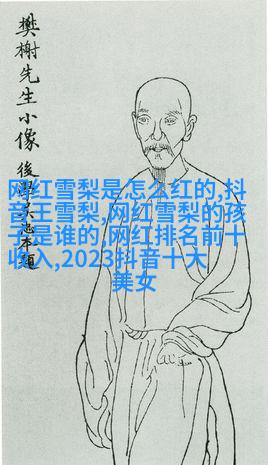 樊榭先生小像
後
网红雪梨是怎么红的,抖
音王雪梨,网红雪梨的孩
子是谁的,网红排名前十
收入,2023抖音十大
美女